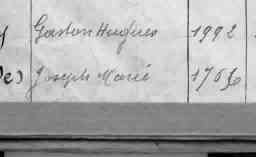 ) Gaston Hugues 1992
de) Joseph Marié